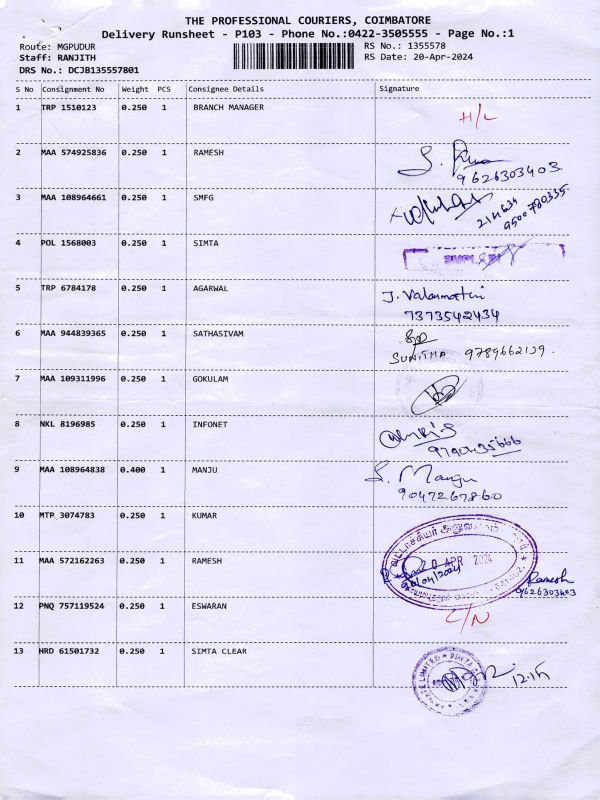 THE PROFESSIONAL COURIERS, COIMBATORE
Delivery Runsheet - P103 - Phone No.:0422-3505555 - Page No.:1
Route: MGPUDUR RS No.: 1355578
Staff: RANJITH RS Date: 20-Apr-2024
DRS No.: DCJB135557801
S No Consignment No Weight PCS Consignee Details Signature
1 TRP 1510123 0.250 1 BRANCH MANAGER
H/L
2 MAA 574925836 0.250 1 RAMESH
9626303403
3 MAA 108964661 0.250 1 SMFG
4 POL 1568003 0.250 1 SIMTA
5 TRP 6784178 0.250 1 AGARWAL
J. Valarmathi
7373542434
6 MAA 944839365 0.250 1 SATHASIVAM
SUNITHA 9789662129
7 MAA 109311996 0.250 1 GOKULAM
8 NKL 8196985 0.250 1 INFONET
9 MAA 108964838 0.400 1 MANJU
S. Manju
9047267860
10 MTP 3074783 0.250 1 KUMAR
11 MAA 572162263 0.250 1 RAMESH
20 APR 2024
Ramesh
9626303403
12 PNQ 757119524 0.250 1 ESWARAN
C/N
13 HRD 61501732 0.250 1 SIMTA CLEAR
12.15